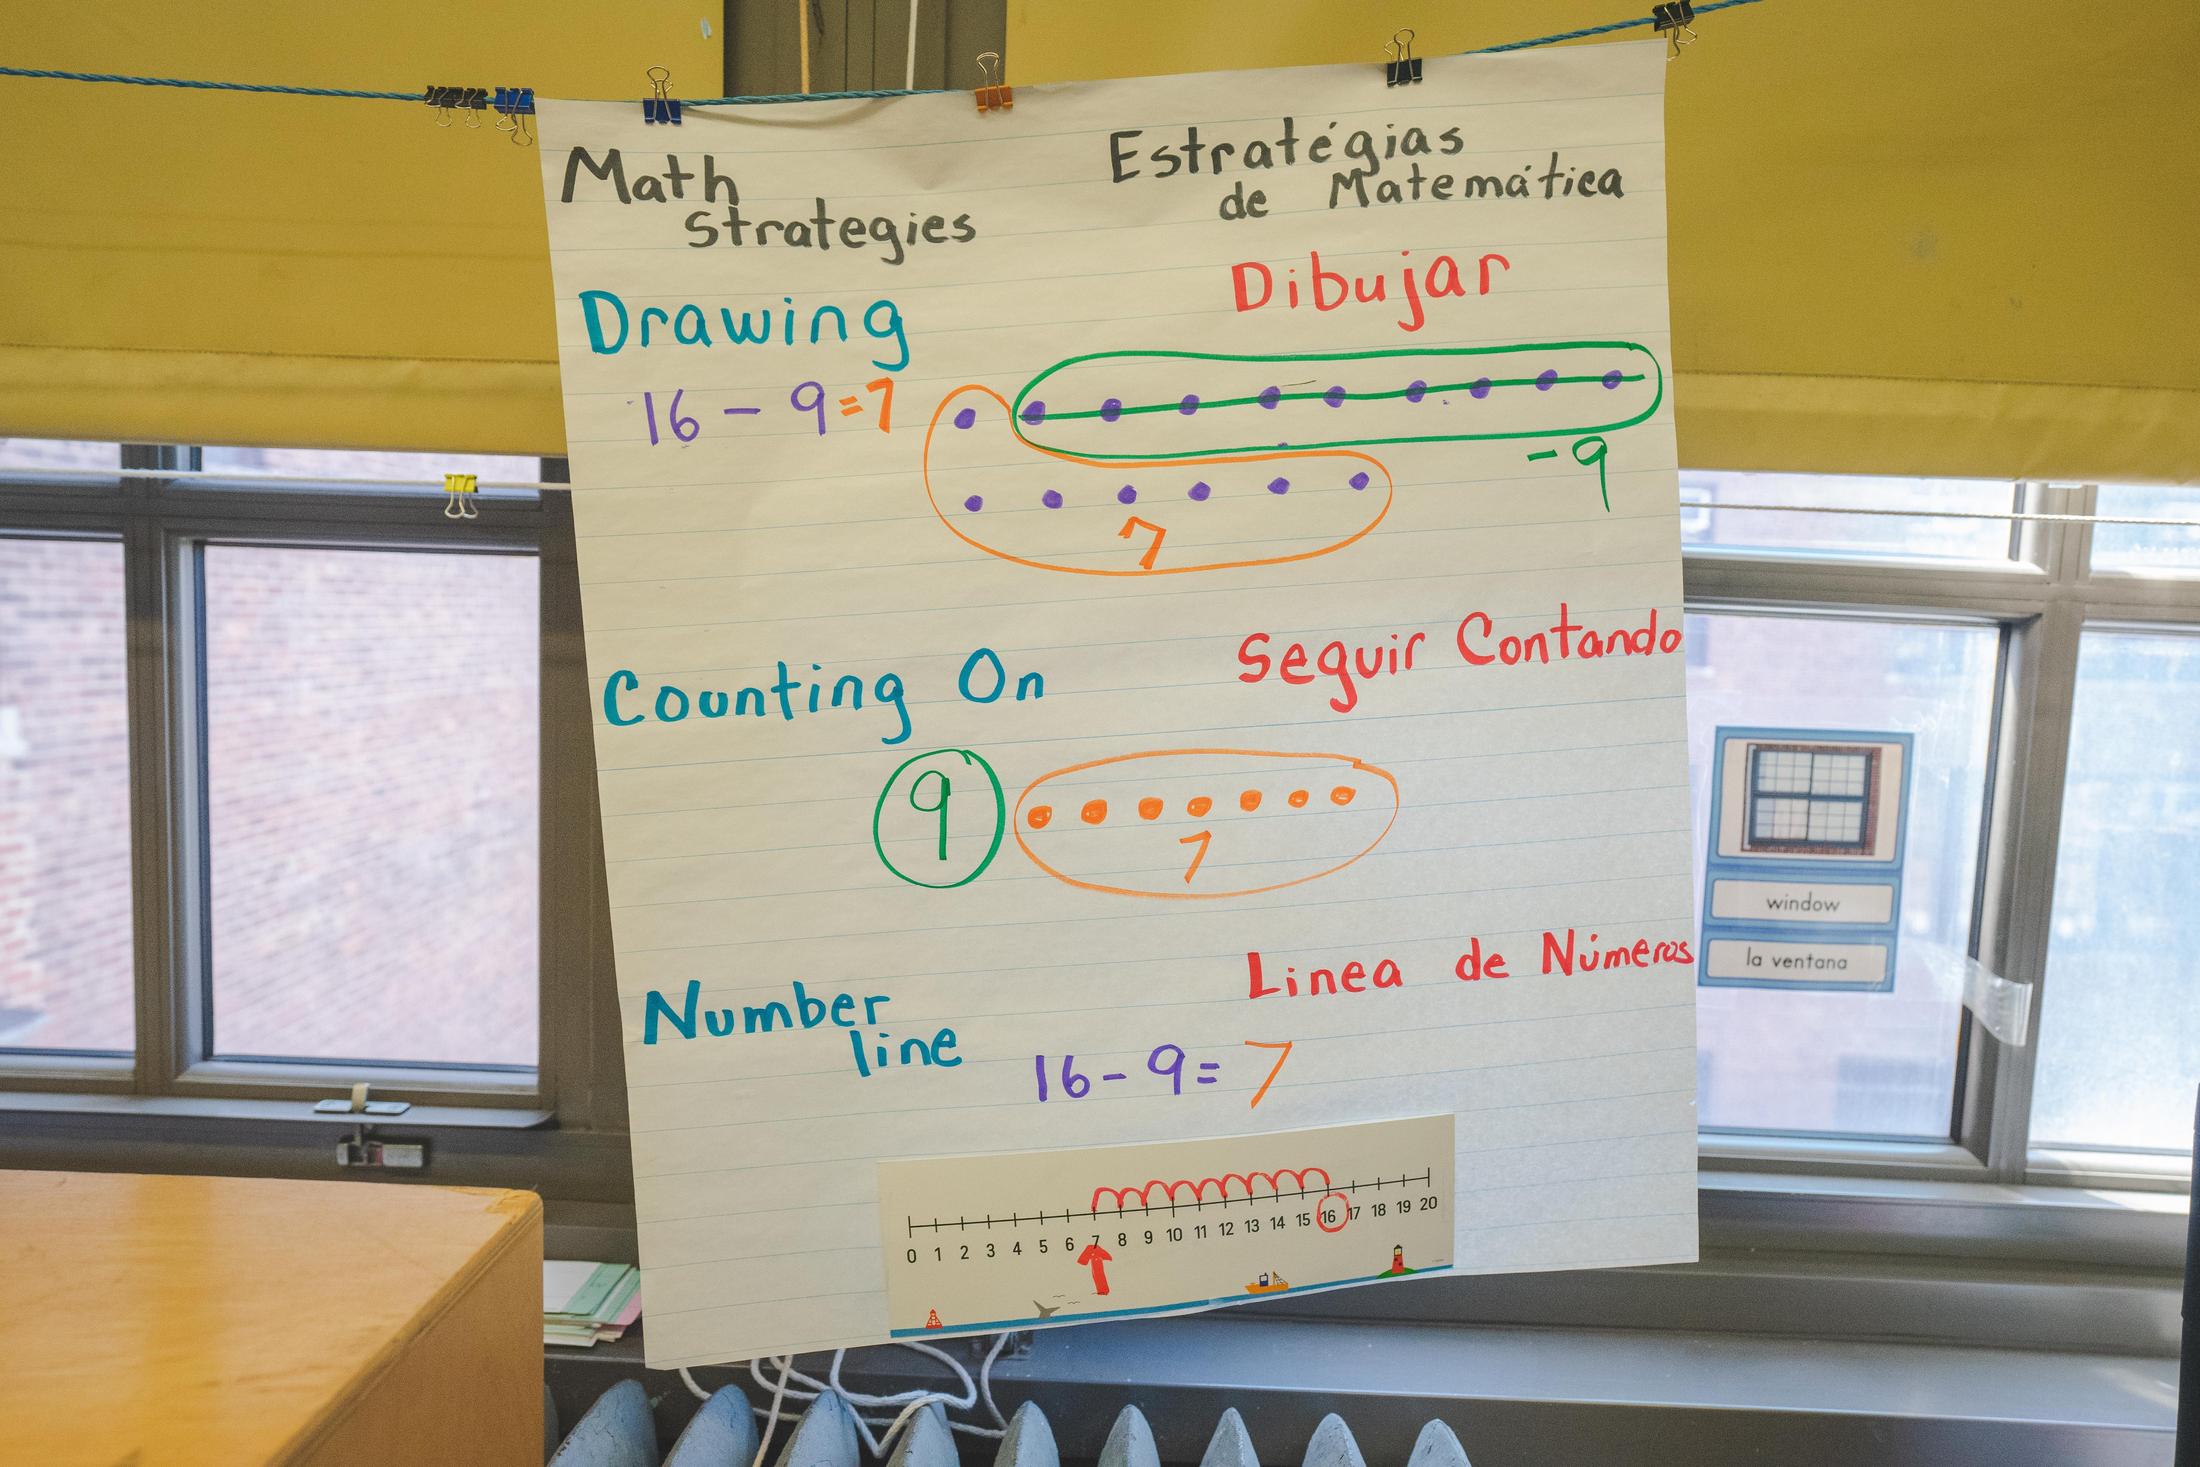 Math
Strategies
Estratégias
de Matemática
Drawing
Dibujar
16 - 9=7
-9
7
Counting On
Seguir Contando
9
7
Number
line
Linea de Números
16-9= 7
0 1 2 3 4 5 6 7 8 9 10 11 12 13 14 15 16 17 18 19 20
window
la ventana